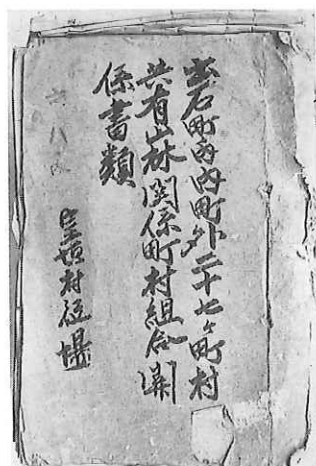 出石町内内町外二十七ヶ町村
共有山林関係町村組合関
係書類
室埴村役場